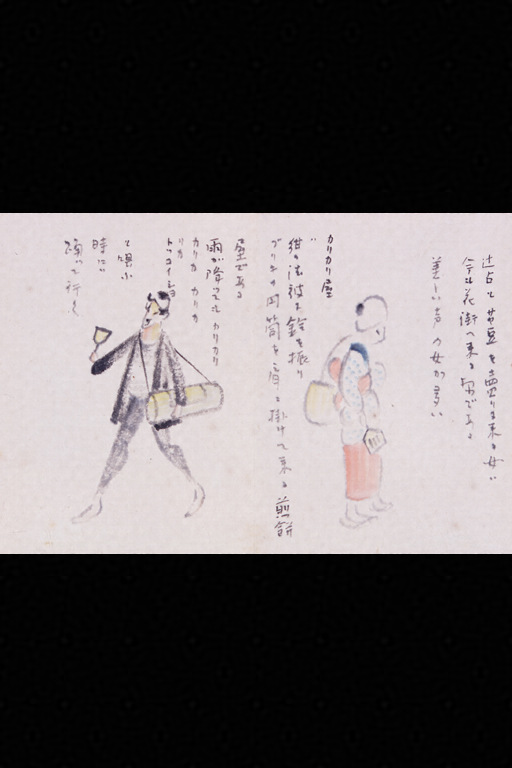 辻占と豆を売りに来る女
今も花街へ来る
美しい声の女が多い
カリカリ屋
紺の法被で鈴を振り
ブリキの円筒を肩に掛けて来る煎餅
屋である
雨が降ってもカリカリ
カリカカリカ
リカ
トコイショ
と唄ふ
時に
踊って行く